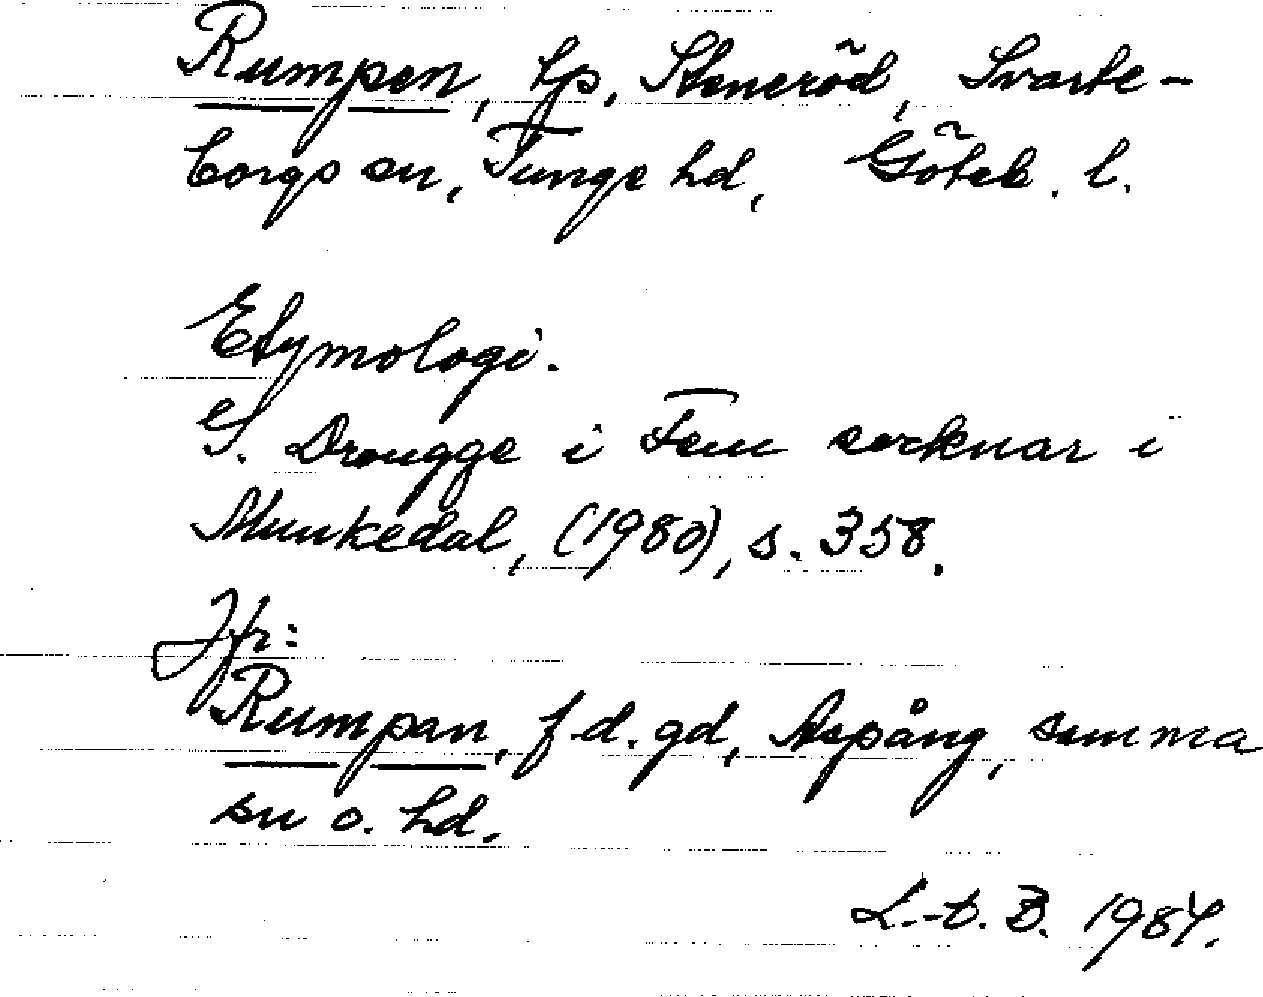 Rumpen, tp, Steneröd, Svarte-
borgs sn, Tunge hd, Göteb. l.
Etymologi.
G. Drougge i Fem socknar i
Munkedal, (1980), s. 358.
Jfr:
Rumpan, f d. gd, Aspång, samma
sn o. hd.
L.-t. B. 1984.